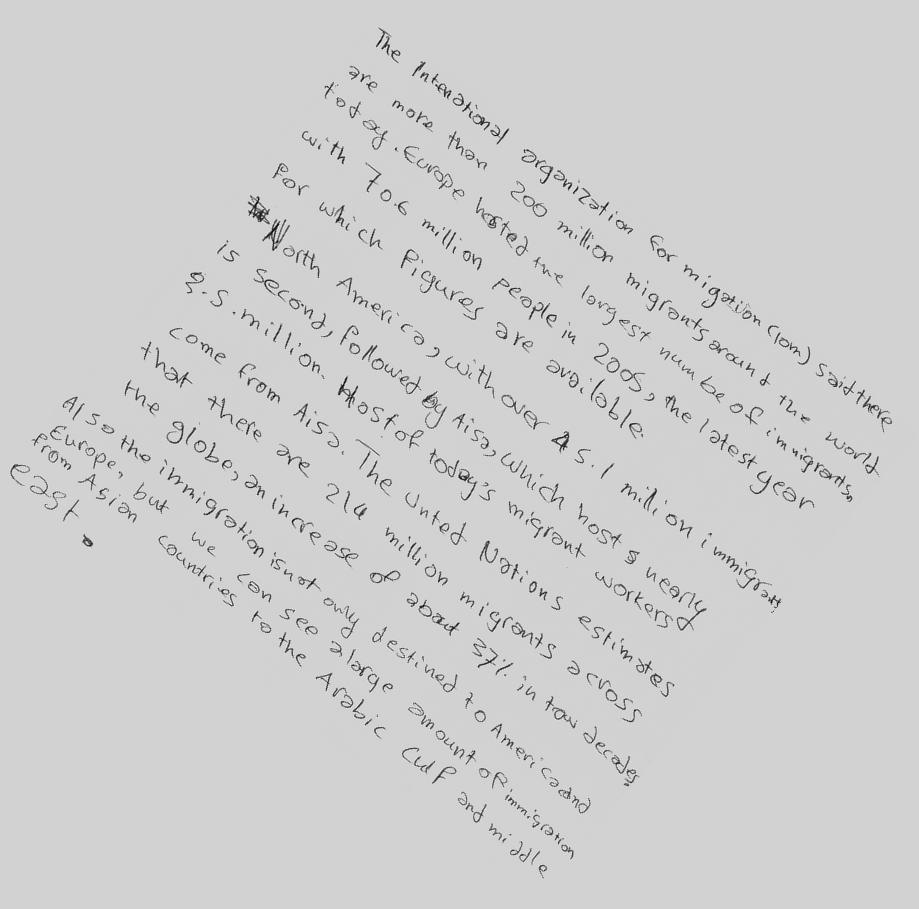 The Intenational organization for migation (iom) said there
are more than 200 million migrants around the world
today. Europe hosted the largest numbe of immigrants,
with 70.6 million people in 2005, the latest year
for which figures are available.
North America, with over 45.1 million immigrants,
is second, followed by Aisa, which hosts nearly
2.5.million. Most of today's migrant workers
come from Aisa. The Unted Nations estimates
that there are 214 million migrants across
the globe, an increase of about 37% in tow decades
Also the immigration is not only destined to America and
Europe, but we can see a large amount of immigration
from Asian countries to the Arabic Culf and middle
east.